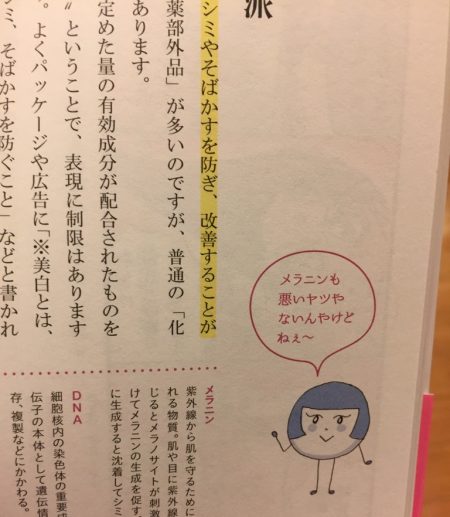 派
シミやそばかすを防ぎ、改善することが
薬部外品」が多いのですが、普通の「化
あります。
定めた量の有効成分が配合されたものを
”ということで、表現に制限はあります
。よくパッケージや広告に「※美白とは、
ミ、そばかすを防ぐこと」などと書かれ
メラニンも
悪いヤツや
ないんやけど
ねぇ〜
メラニン
紫外線から肌を守るために
れる物質。肌や目に紫外線
じるとメラノサイトが刺激
けてメラニンの生成を促す
に生成すると沈着してシミ
DNA
細胞核内の染色体の重要成
伝子の本体として遺伝情
存、複製などにかかわる。